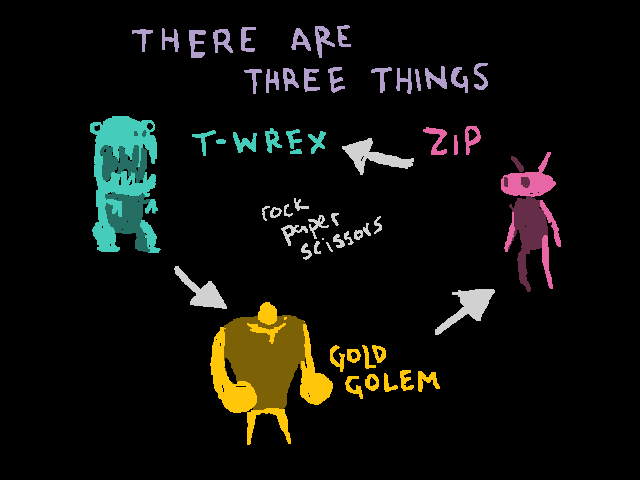 THERE ARE
THREE THINGS
T-WREX
ZIP
rock
paper
scissors
GOLD
GOLEM